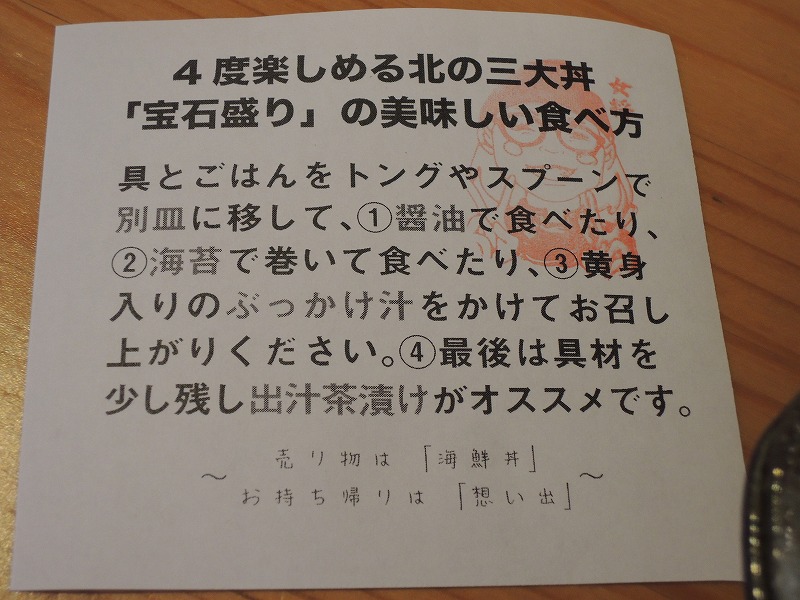 4度楽しめる北の三大丼
「宝石盛り」の美味しい食べ方
具とごはんをトングやスプーンで
別皿に移して、①醤油で食べたり、
②海苔で巻いて食べたり、③黄身
入りのぶっかけ汁をかけてお召し
上がりください。④最後は具材を
少し残し出汁茶漬けがオススメです。
～ 売り物は「海鮮丼」
お持ち帰りは「想い出」～